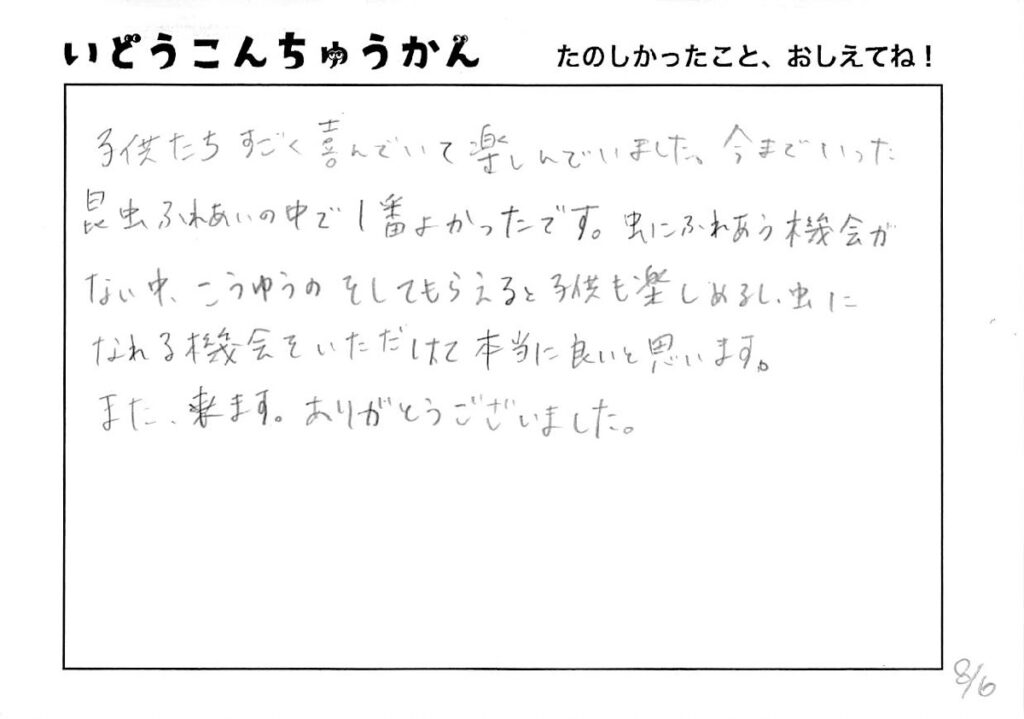 いどうこんちゅうかん
たのしかったこと、おしえてね！
子供たちすごく喜んでいて楽しんでいました。今まで いった
昆虫ふれあいの中で1番よかったです。虫にふれあう機会が
ない中、こうゆうのをしてもらえると子供も楽しめるし、虫に
なれる機会をいただけて本当に良いと思います。
また、来ます。ありがとうございました。
8/6